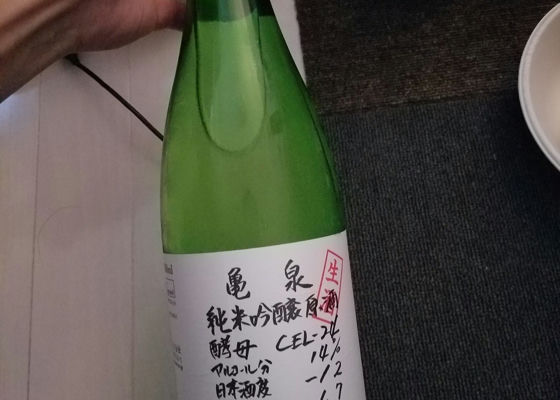 亀泉
生酒
純米吟醸原
酵母 CEL-24
アルコール分 14%
日本酒度 -12